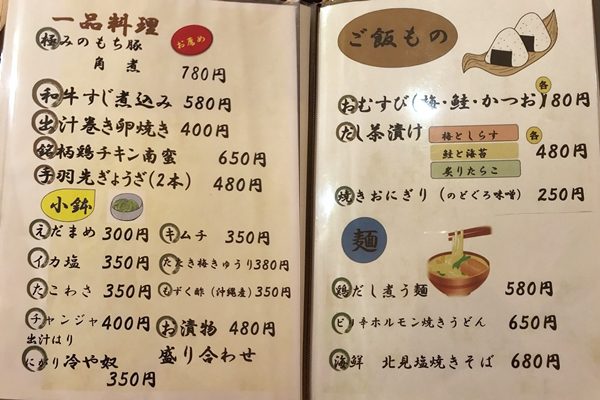 一品料理
極みのもち豚
お薦め
角煮 780円
和牛すじ煮込み 580円
出汁巻き卵焼き 400円
銘柄鶏チキン南蛮 650円
手羽先ぎょうざ(2本) 480円
小鉢
えだまめ 300円
キムチ 350円
イカ塩 350円
たたき梅きゅうり 380円
たこわさ 350円
もずく酢(沖縄産) 350円
チャンジャ 400円
お漬物 480円
盛り合わせ
出汁はり
にがり冷や奴
350円
ご飯もの
おむすび(梅・鮭・かつお) 各 180円
だし茶漬け
梅としらす
鮭と海苔
炙りたらこ
各 480円
焼きおにぎり(のどぐろ味噌) 250円
麺
鶏だし煮う麺 580円
ピリ辛ホルモン焼きうどん 650円
海鮮 北見塩焼きそば 680円